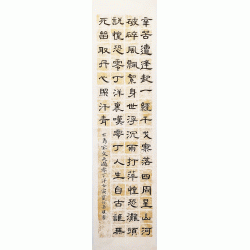 辛苦遭逢起一經干戈寥落四周星山河
破碎風飄絮身世浮沉雨打萍惶恐灘頭
說惶恐零丁洋裏嘆零丁人生自古誰無
死留取丹心照汗青